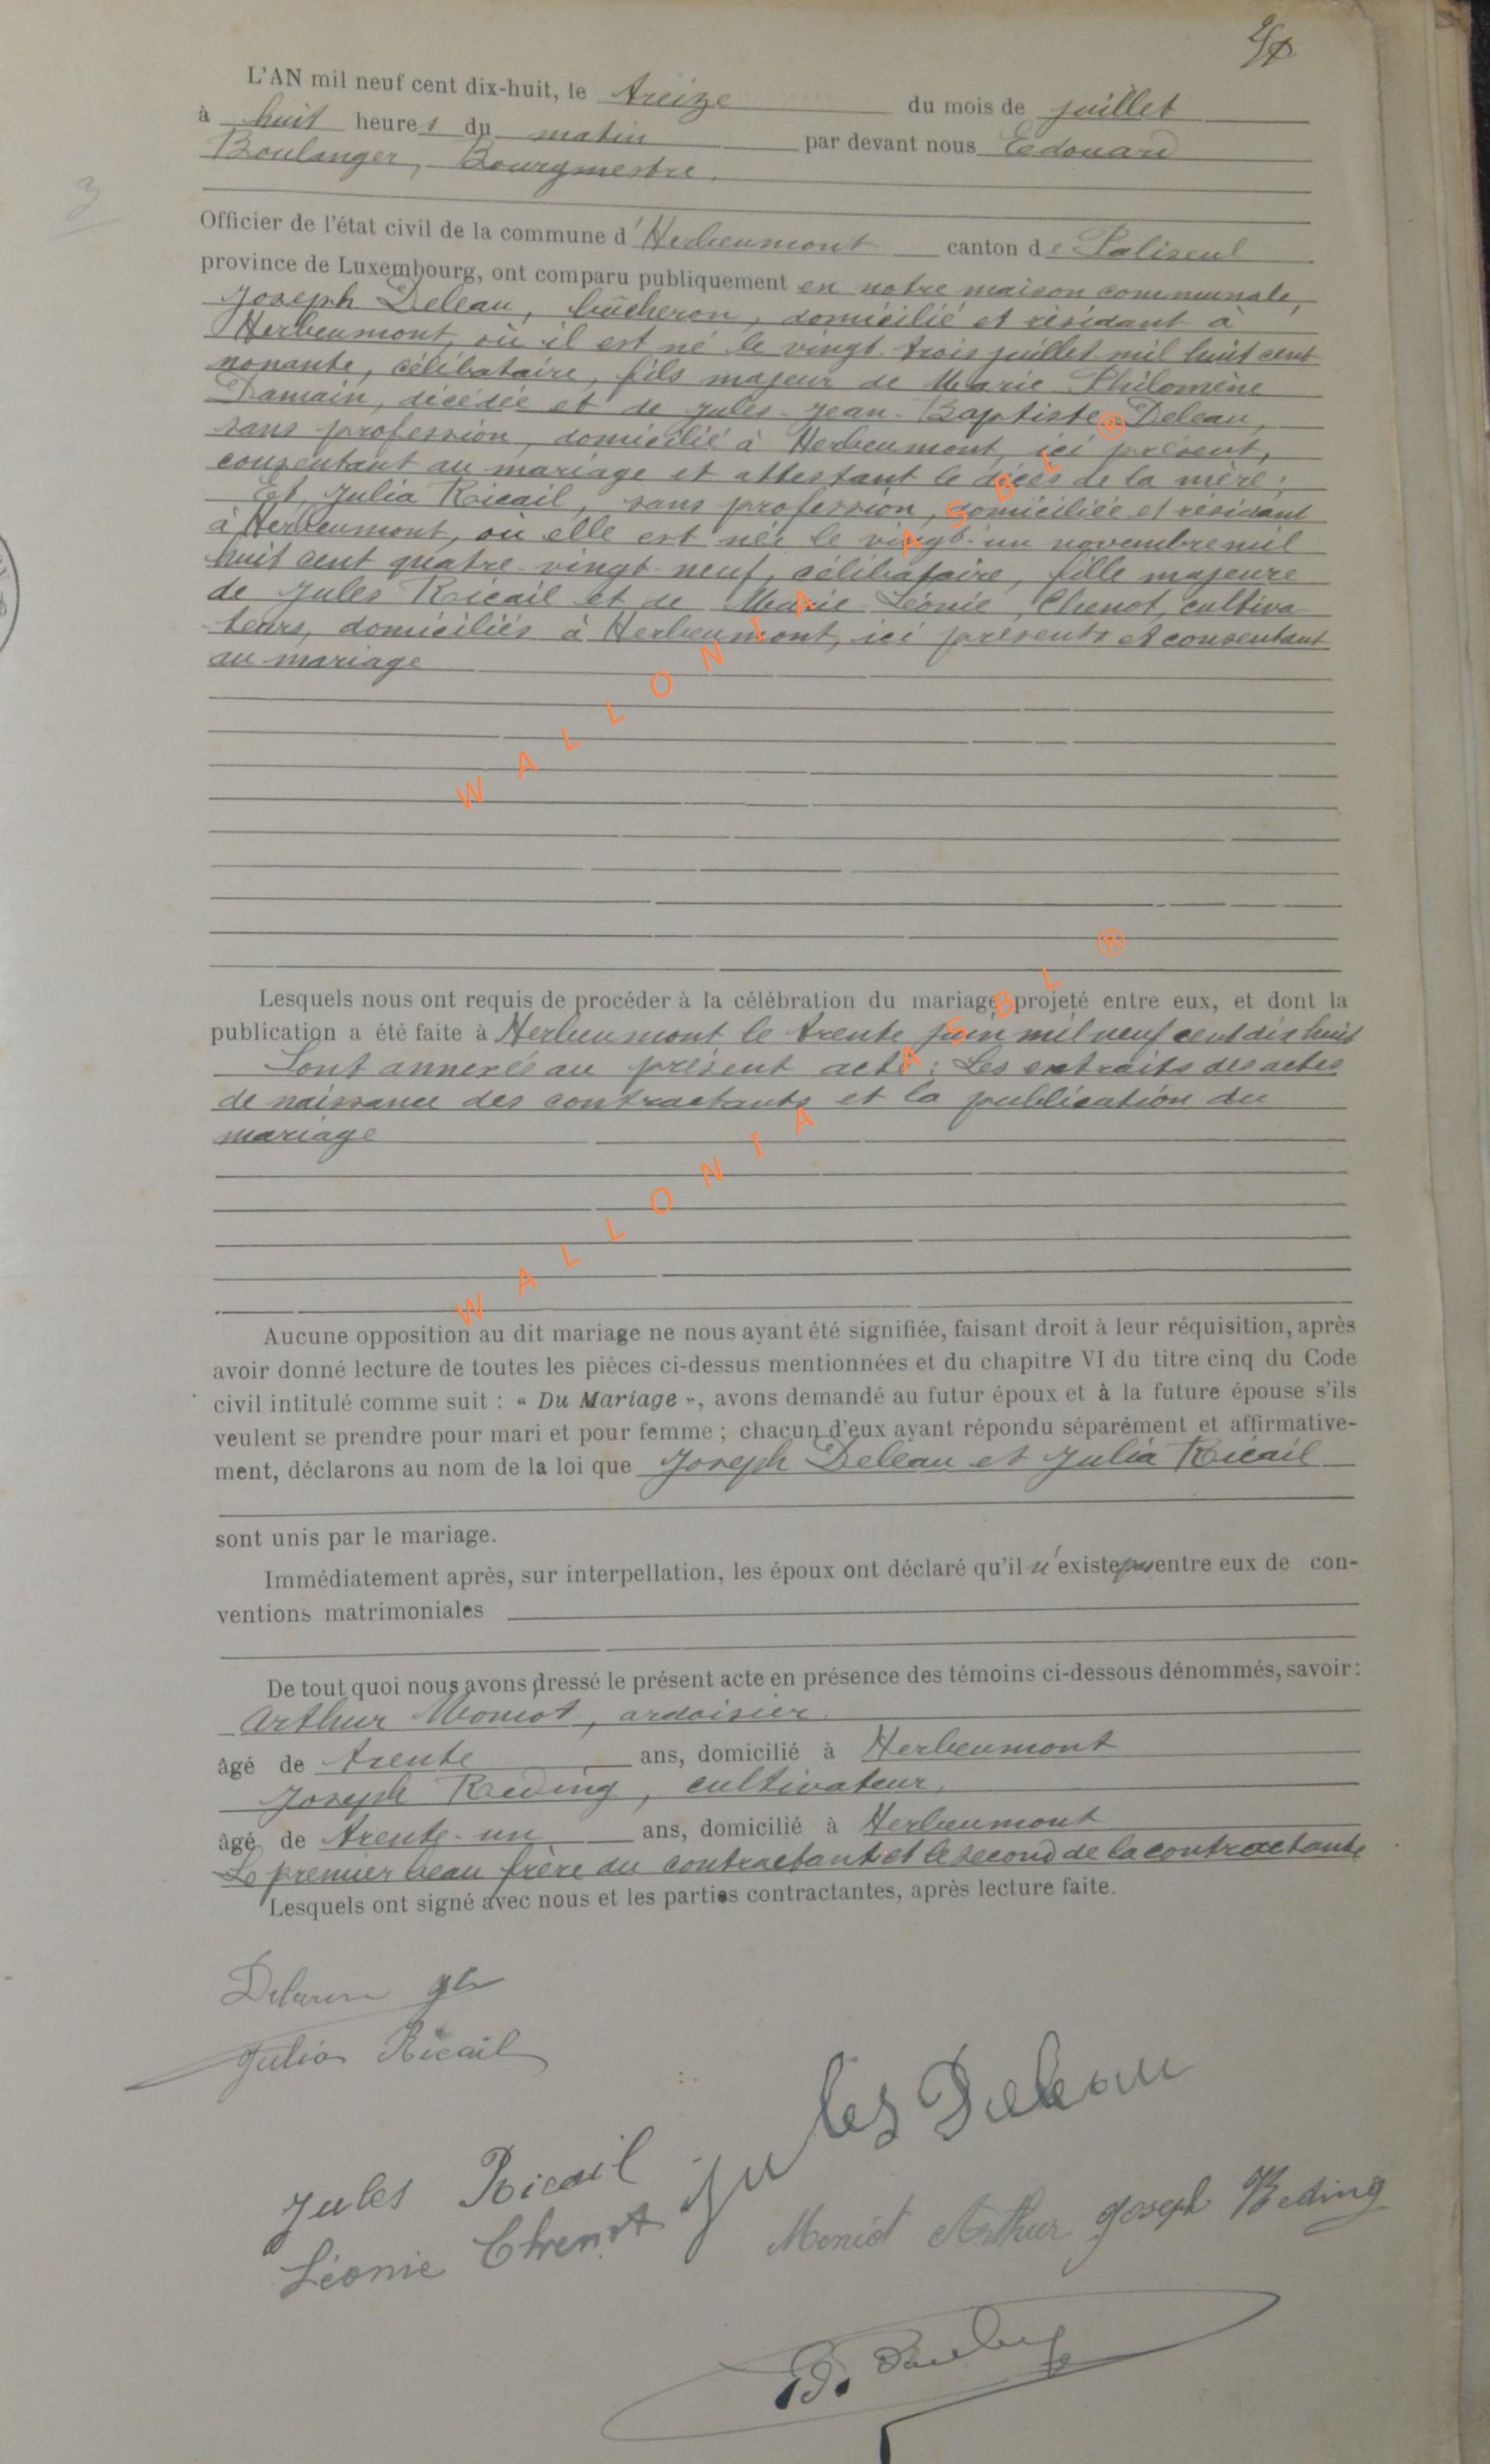 L'AN mil neuf cent dix-huit, le treize du mois de juillet
à huit heures du matin par devant nous Edouard
Boulanger, Bourgmestre,
3
Officier de l'état civil de la commune d'Herbeumont canton de Paliseul
province de Luxembourg, ont comparu publiquement en notre maison communale,
Joseph Deleau, bûcheron, domicilié et résidant à
Herbeumont, où il est né le vingt-trois juillet mil huit cent
nonante, célibataire, fils majeur de Marie Philomène
Damain, décédée et de Jules-Jean-Baptiste Deleau,
sans profession, domicilié à Herbeumont, ici présent,
consentant au mariage et attestant le décès de la mère;
Et Julia Ricail, sans profession, domiciliée et résidant
à Herbeumont, où elle est née le vingt-un novembre mil
huit cent quatre-vingt-neuf, célibataire, fille majeure
de Jules Ricail et de Marie-Léonie Chenot, cultiva-
teurs, domiciliés à Herbeumont, ici présents et consentant
au mariage
WALLONIA ASBL ®
Lesquels nous ont requis de procéder à la célébration du mariage projeté entre eux, et dont la
publication a été faite à Herbeumont le trente juin mil neuf cent dix huit
Sont annexés au présent acte : Les extraits des actes
de naissance des contractants et la publication du
mariage
WALLONIA ASBL ®
Aucune opposition au dit mariage ne nous ayant été signifiée, faisant droit à leur réquisition, après
avoir donné lecture de toutes les pièces ci-dessus mentionnées et du chapitre VI du titre cinq du Code
civil intitulé comme suit : « Du Mariage », avons demandé au futur époux et à la future épouse s'ils
veulent se prendre pour mari et pour femme ; chacun d'eux ayant répondu séparément et affirmative-
ment, déclarons au nom de la loi que Joseph Deleau et Julia Ricail
sont unis par le mariage.
Immédiatement après, sur interpellation, les époux ont déclaré qu'il n'existe pas entre eux de con-
ventions matrimoniales
De tout quoi nous avons dressé le présent acte en présence des témoins ci-dessous dénommés, savoir :
Arthur Moniot, ardoisier
âgé de trente ans, domicilié à Herbeumont
Joseph Reding, cultivateur,
âgé de trente-un ans, domicilié à Herbeumont
Le premier beau frère du contractant et le second de la contractante
Lesquels ont signé avec nous et les parties contractantes, après lecture faite.
Deleau Jh
Julia Ricail
Jules Deleau
Jules Ricail
Léonie Chenot
Moniot Arthur Joseph Reding